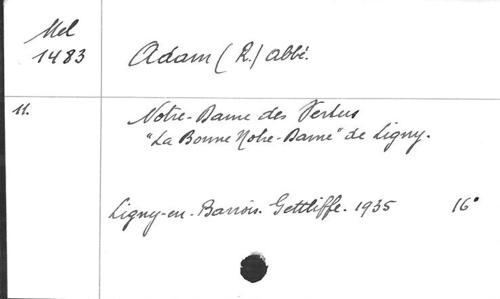 Mel
1483
Adam (R.) abbé.
11.
Notre-Dame des Vertus
"La Bonne Notre-Dame" de Ligny.
Ligny-en-Barrois. Gettliffe. 1935 16°